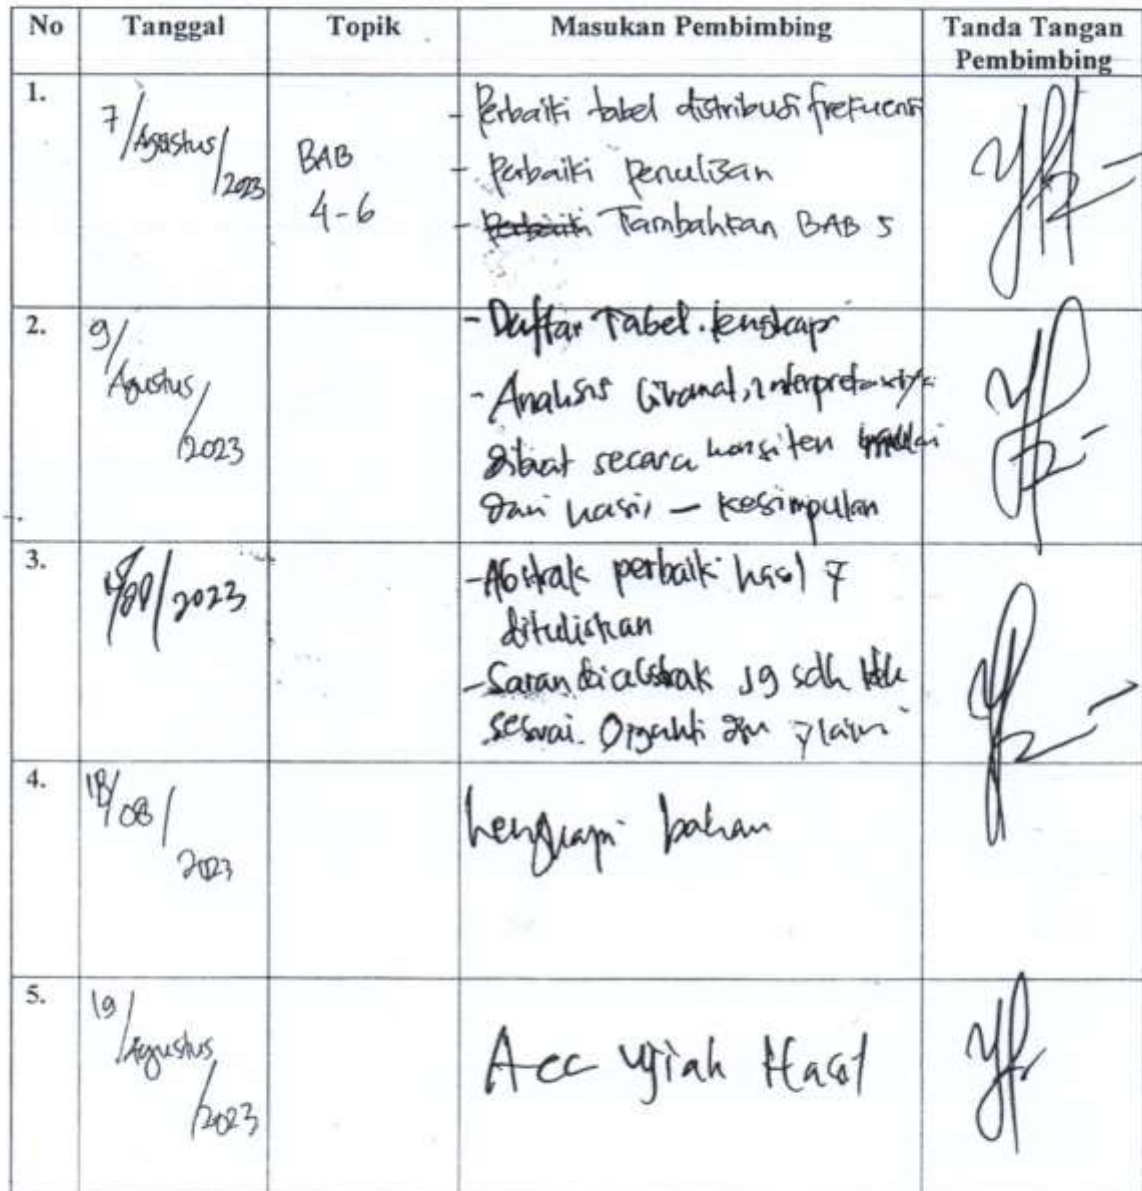 No Tanggal Topik Masukan Pembimbing Tanda Tangan Pembimbing
1.
7/Agustus/2023
BAB
4-6
- Perbaiki tabel distribusi frekuensi
- Perbaiki penulisan
- Perbaiki Tambahkan BAB 5
2.
9/Agustus/2023
- Daftar Tabel lengkapi
- Analisis
dibuat secara konsiten
dari hasil – kesimpulan
3.
/08/2023
- Abstrak perbaiki hasil
dituliskan
- Saran di abstrak sdh
sesuai.
4.
18/08/2023
lengkapi bahan
5.
19/Agustus/2023
Acc Ujian Hasil